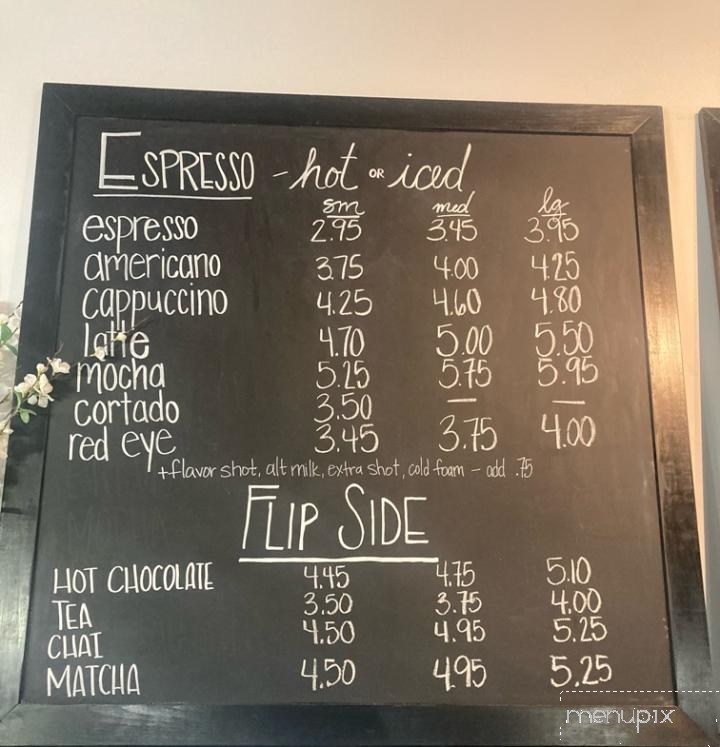 ESPRESSO - hot OR iced
sm med lg
espresso 2.95 3.45 3.95
americano 3.75 4.00 4.25
cappuccino 4.25 4.60 4.80
latte 4.70 5.00 5.50
mocha 5.25 5.75 5.95
cortado 3.50 — —
red eye 3.45 3.75 4.00
+flavor shot, alt milk, extra shot, cold foam - add .75
FLIP SIDE
HOT CHOCOLATE 4.45 4.75 5.10
TEA 3.50 3.75 4.00
CHAI 4.50 4.95 5.25
MATCHA 4.50 4.95 5.25
menupix